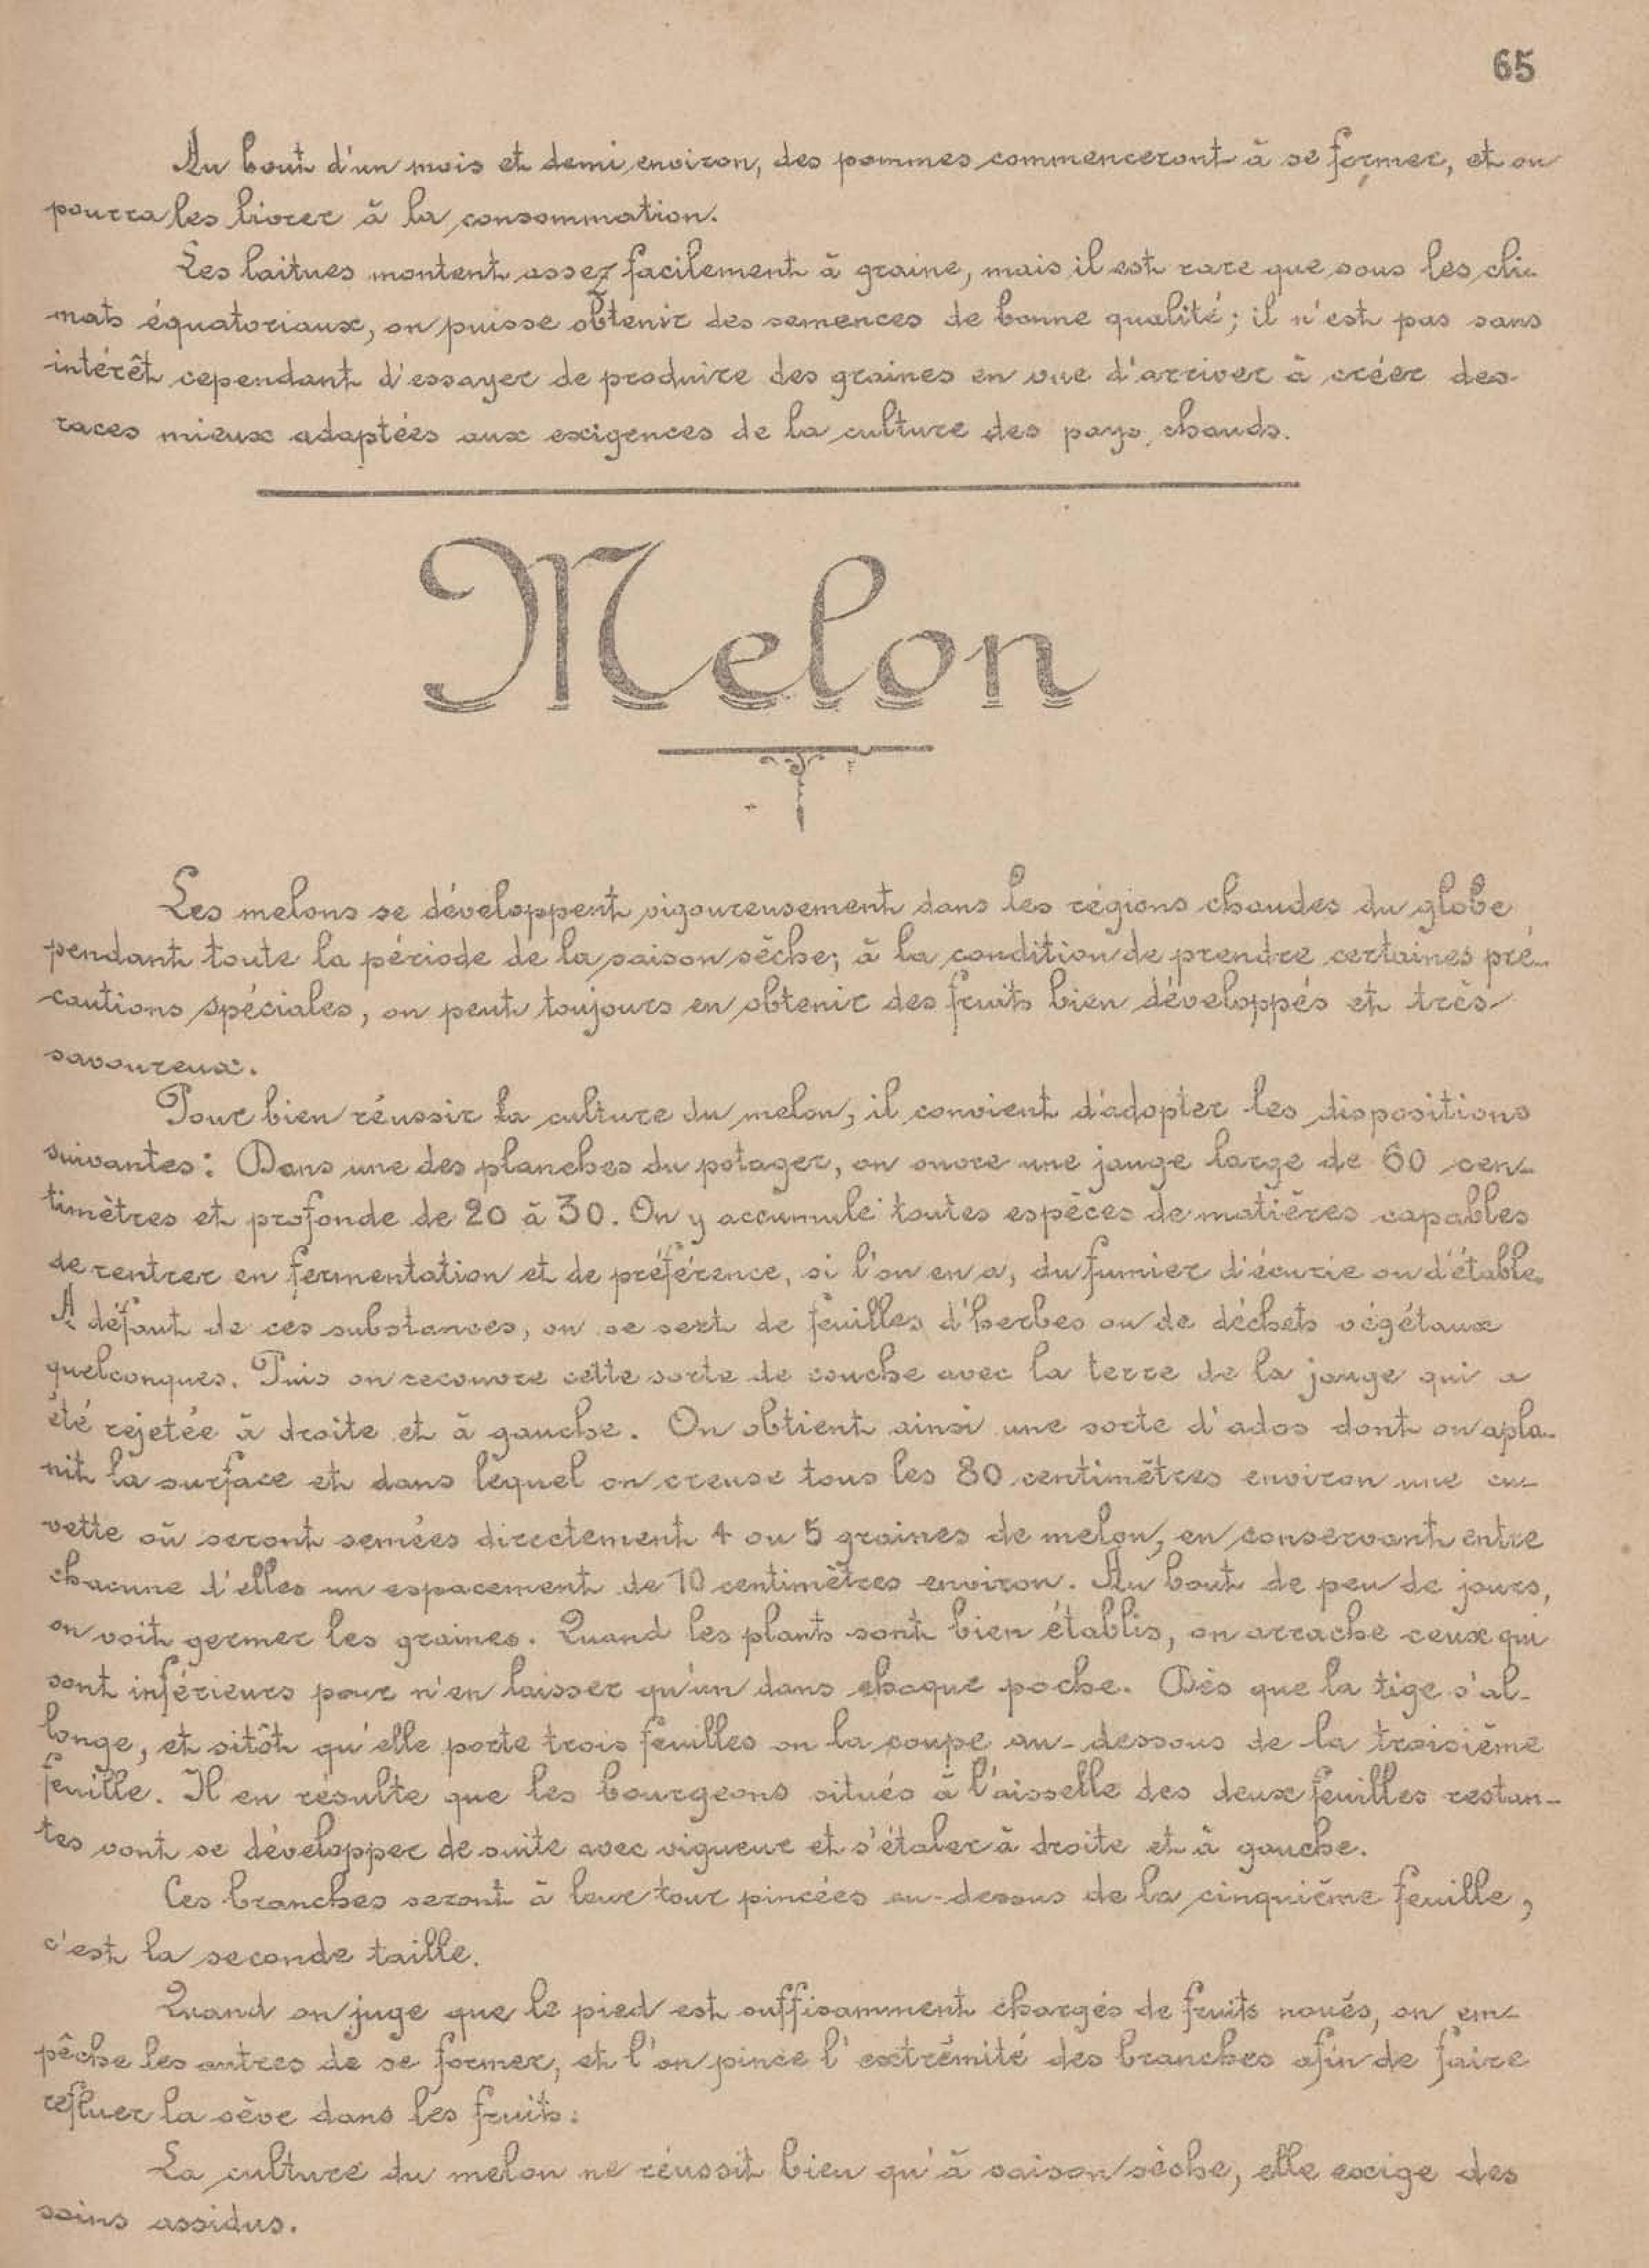 65
Au bout d'un mois et demi environ, des pommes commenceront à se former, et on
pourra les livrer à la consommation.
Les laitues montent assez facilement à graine, mais il est rare que sous les cli-
mats équatoriaux, on puisse obtenir des semences de bonne qualité; il n'est pas sans
intérêt cependant d'essayer de produire des graines en vue d'arriver à créer des
races mieux adaptées aux exigences de la culture des pays chauds.
Melon
Les melons se développent vigoureusement dans les régions chaudes du globe
pendant toute la période de la saison sèche; à la condition de prendre certaines pré-
cautions spéciales, on peut toujours en obtenir des fruits bien développés et très
savoureux.
Pour bien réussir la culture du melon, il convient d'adopter les dispositions
suivantes: Dans une des planches du potager, on ouvre une jauge large de 60 cen-
timètres et profonde de 20 à 30. On y accumule toutes espèces de matières capables
de rentrer en fermentation et de préférence, si l'on en a, du fumier d'écurie ou d'étable.
A défaut de ces substances, on se sert de feuilles d'herbes ou de déchets végétaux
quelconques. Puis on recouvre cette sorte de couche avec la terre de la jauge qui a
été rejetée à droite et à gauche. On obtient ainsi une sorte d'ados dont on apla-
nit la surface et dans lequel on creuse tous les 80 centimètres environ une cu-
vette où seront semées directement 4 ou 5 graines de melon, en conservant entre
chacune d'elles un espacement de 10 centimètres environ. Au bout de peu de jours,
on voit germer les graines. Quand les plants sont bien établis, on arrache ceux qui
sont inférieurs pour n'en laisser qu'un dans chaque poche. Dès que la tige s'al-
longe, et sitôt qu'elle porte trois feuilles on la coupe au-dessous de la troisième
feuille. Il en résulte que les bourgeons situés à l'aisselle des deux feuilles restan-
tes vont se développer de suite avec vigueur et s'étaler à droite et à gauche.
Ces branches seront à leur tour pincées au-dessus de la cinquième feuille,
c'est la seconde taille.
Quand on juge que le pied est suffisamment chargés de fruits noués, on em-
pêche les autres de se former, et l'on pince l'extrémité des branches afin de faire
refluer la sève dans les fruits.
La culture du melon ne réussit bien qu'à saison sèche, elle exige des
soins assidus.